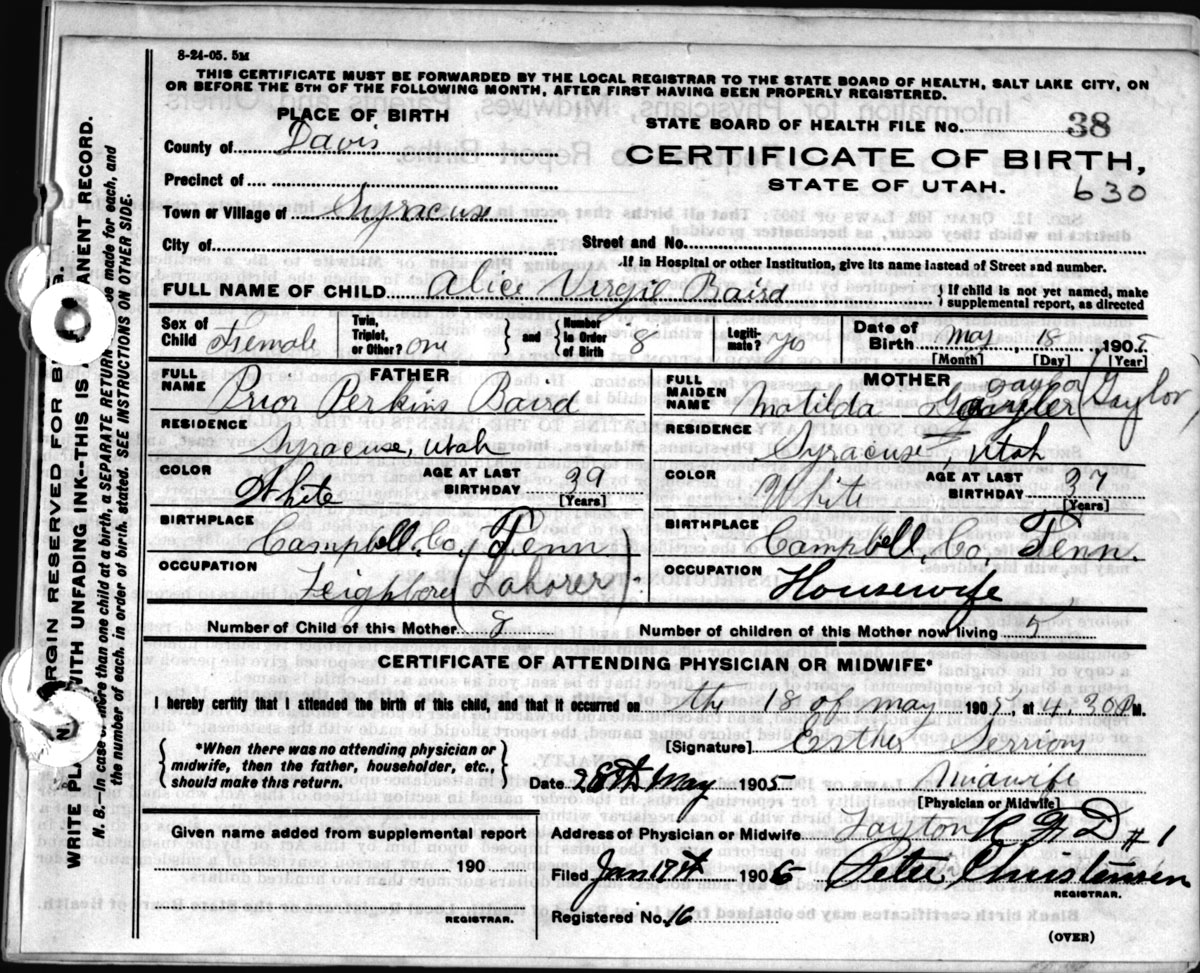 8-24-05. 5M
THIS CERTIFICATE MUST BE FORWARDED BY THE LOCAL REGISTRAR TO THE STATE BOARD OF HEALTH, SALT LAKE CITY, ON
OR BEFORE THE 5TH OF THE FOLLOWING MONTH, AFTER FIRST HAVING BEEN PROPERLY REGISTERED.
PLACE OF BIRTH
STATE BOARD OF HEALTH FILE No. 38
County of Davis
CERTIFICATE OF BIRTH,
Precinct of
STATE OF UTAH.
630
Town or Village of Syracuse
City of Street and No.
If in Hospital or other Institution, give its name instead of Street and number.
FULL NAME OF CHILD Alice Virgie Baird } If child is not yet named, make supplemental report, as directed
Sex of Child Female Twin, Triplet, or Other? one } and { Number in Order of Birth 8 Legitimate? yes Date of Birth May 18 1905
[Month] [Day] [Year]
FATHER
FULL NAME Prior Perkins Baird
RESIDENCE Syracuse, Utah
COLOR White AGE AT LAST BIRTHDAY 39 [Years]
BIRTHPLACE Campbell, Co, Tenn
OCCUPATION (Laborer)
MOTHER
FULL MAIDEN NAME Matilda (Gaylor)
RESIDENCE Syracuse, Utah
COLOR White AGE AT LAST BIRTHDAY 37 [Years]
BIRTHPLACE Campbell Co, Tenn.
OCCUPATION Housewife
Number of Child of this Mother 8 Number of children of this Mother now living 5
CERTIFICATE OF ATTENDING PHYSICIAN OR MIDWIFE*
I hereby certify that I attended the birth of this child, and that it occurred on the 18 of may 1905, at 4.30 P M.
*When there was no attending physician or
midwife, then the father, householder, etc.,
should make this return.
[Signature] Esther
Date 28th May 1905 Midwife
[Physician or Midwife]
Given name added from supplemental report
190
REGISTRAR.
Address of Physician or Midwife Layton R F D #1
Filed Jan 17th 1906 Peter Christensen
REGISTRAR.
Registered No. 16
(OVER)
MARGIN RESERVED FOR B
WRITE PLA WITH UNFADING INK--THIS IS A ANENT RECORD.
N. B.--In case of more than one child at a birth, a SEPARATE RETURN be made for each, and
the number of each, in order of birth, stated. SEE INSTRUCTIONS ON OTHER SIDE.